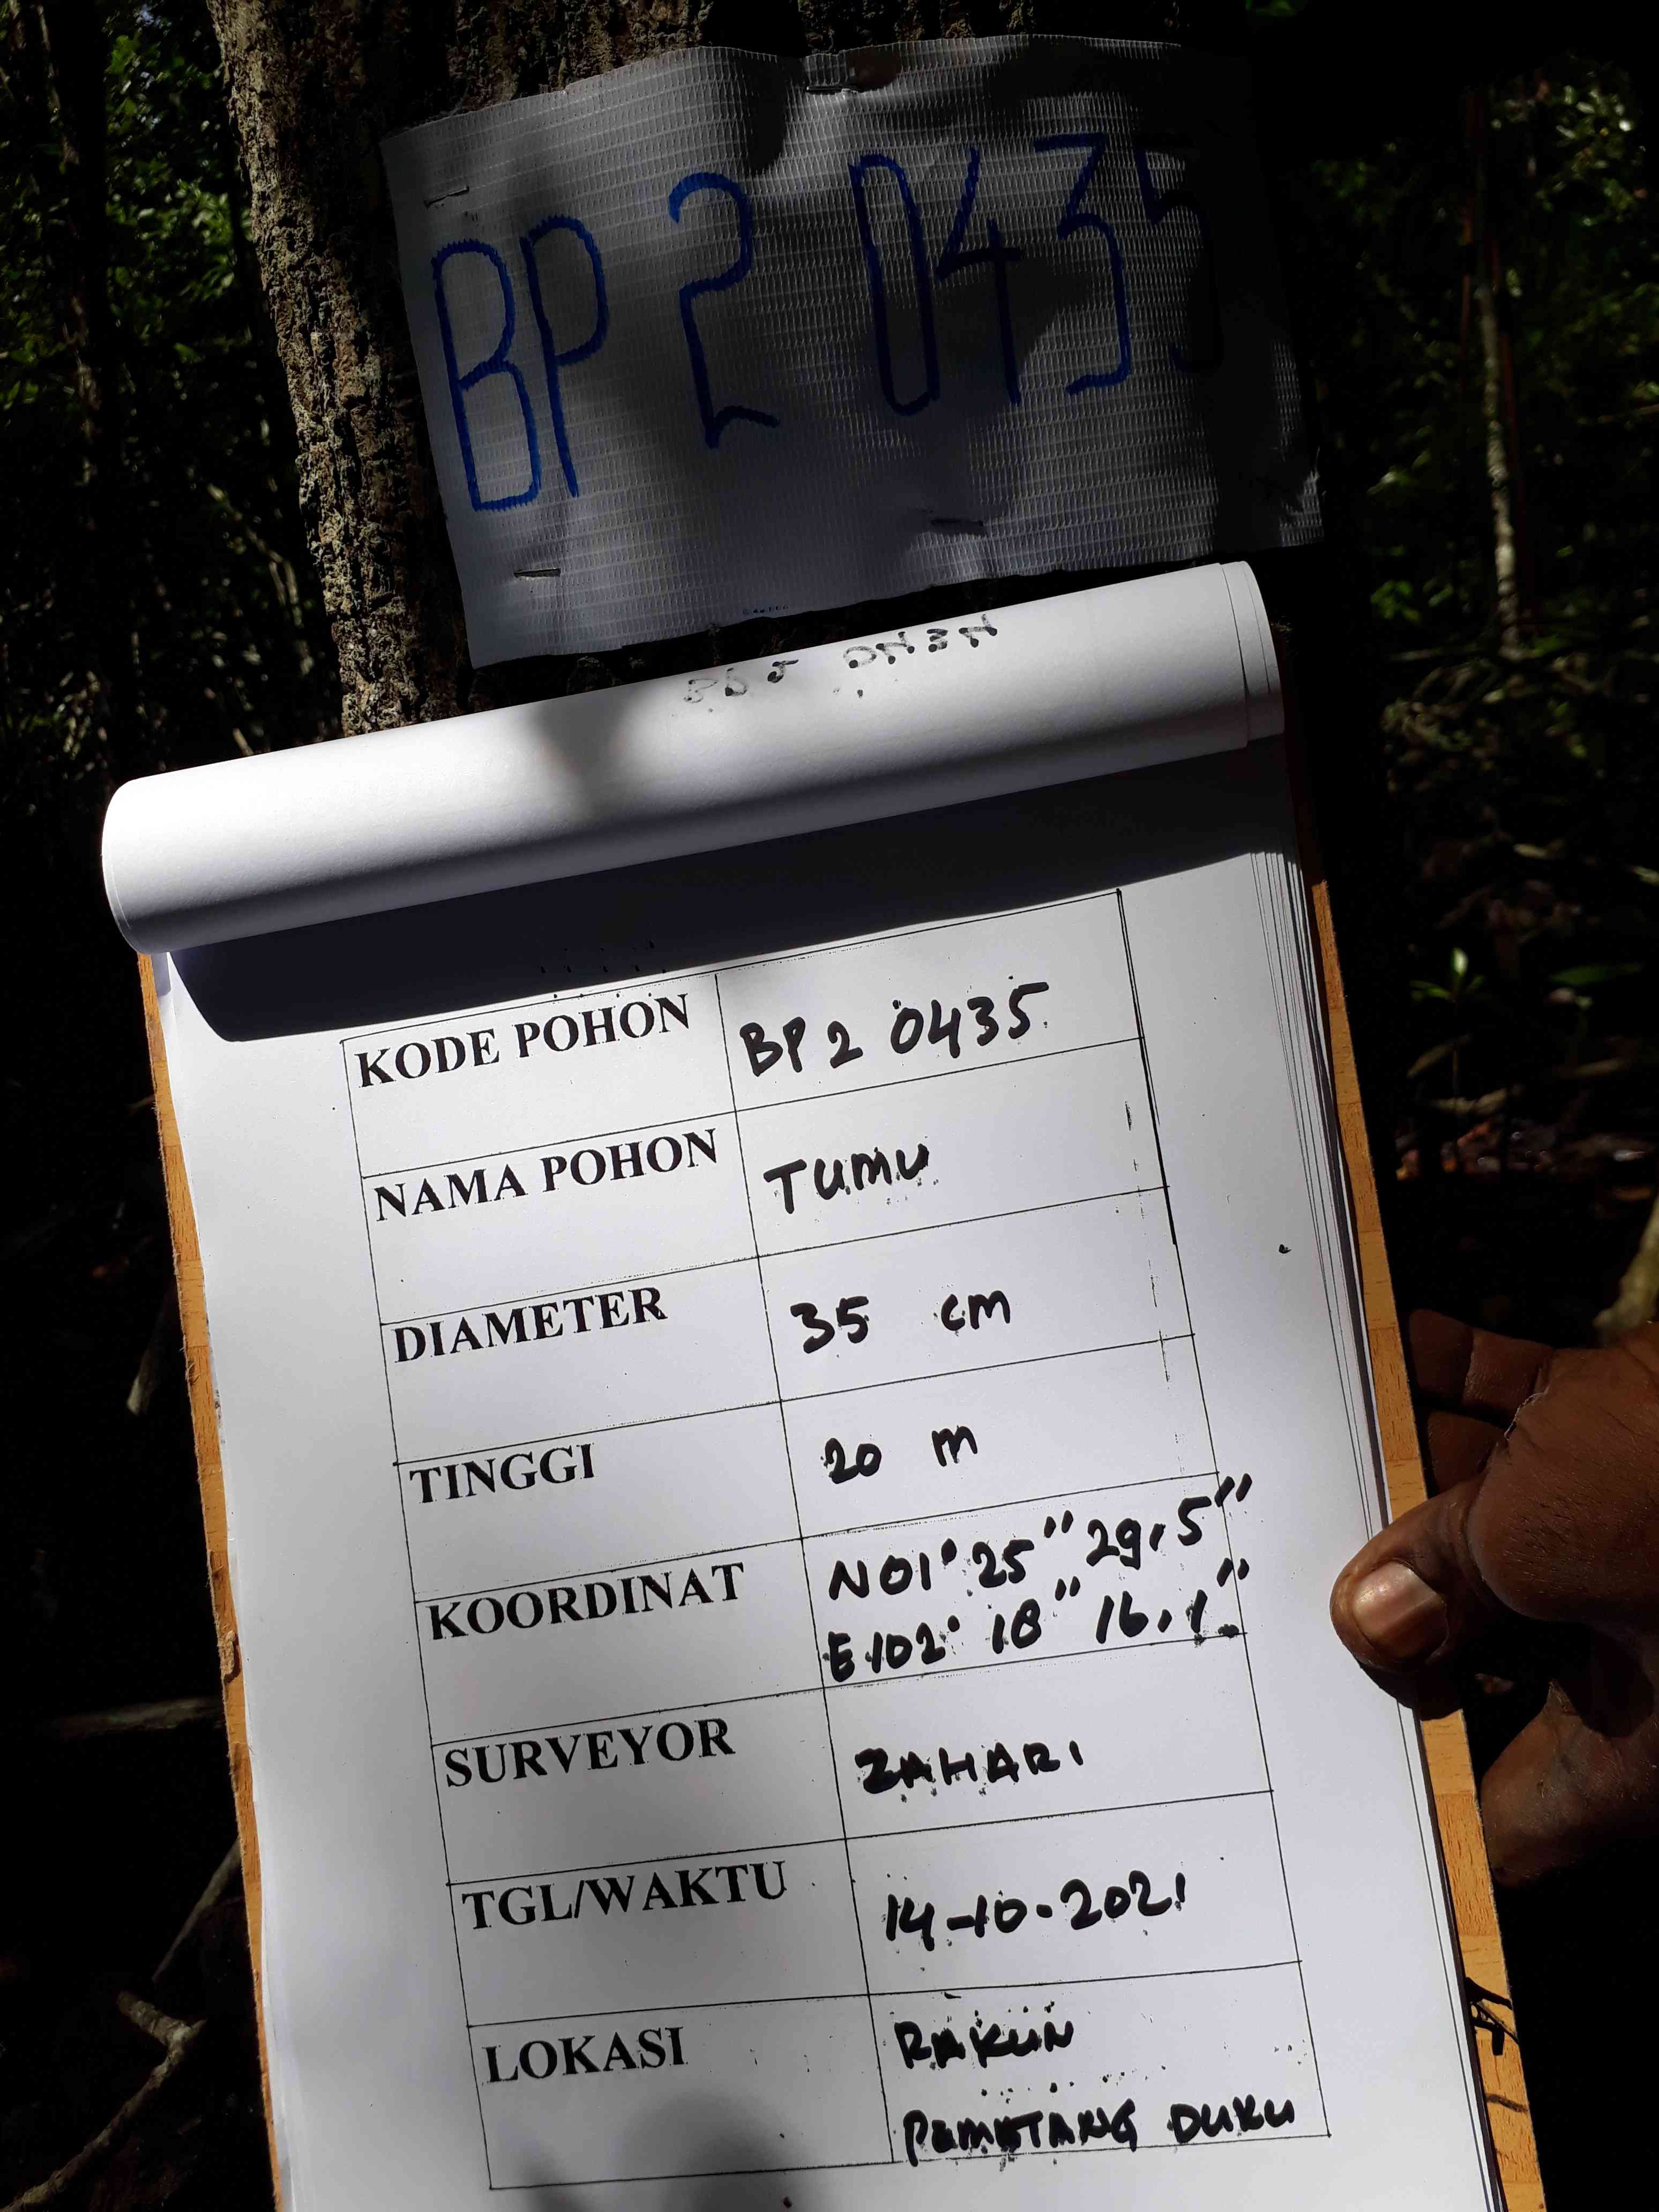 BP 2 0435
KODE POHON BP 2 0435
NAMA POHON TUMU
DIAMETER 35 cm
TINGGI 20 m
KOORDINAT N01° 25" 29,5"
E102° 18" 16,1"
SURVEYOR ZAHARI
TGL/WAKTU 14-10-2021
LOKASI RAKUN
PEMETANG DUKU